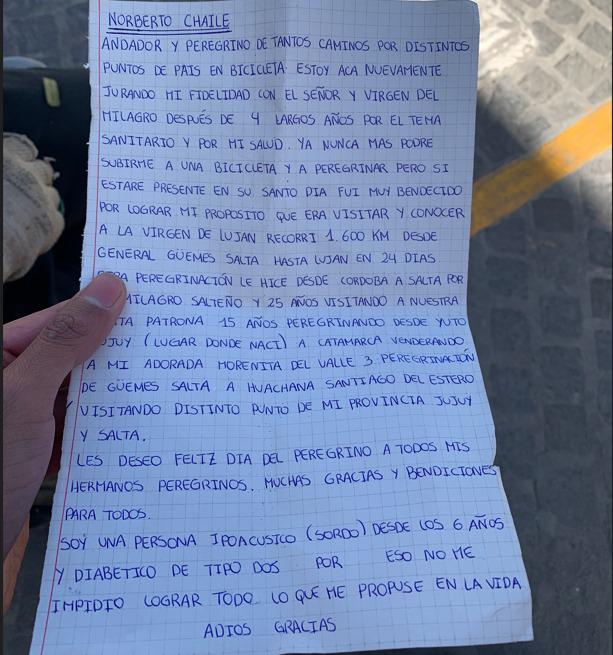 NORBERTO CHAILE
ANDADOR Y PEREGRINO DE TANTOS CAMINOS POR DISTINTOS
PUNTOS DE PAIS EN BICICLETA ESTOY ACA NUEVAMENTE
JURANDO MI FIDELIDAD CON EL SEÑOR Y VIRGEN DEL
MILAGRO DESPUÉS DE 4 LARGOS AÑOS POR EL TEMA
SANITARIO Y POR MI SALUD. YA NUNCA MAS PODRE
SUBIRME A UNA BICICLETA Y A PEREGRINAR PERO SI
ESTARE PRESENTE EN SU SANTO DIA FUI MUY BENDECIDO
POR LOGRAR MI PROPOSITO QUE ERA VISITAR Y CONOCER
A LA VIRGEN DE LUJAN RECORRI 1.600 KM DESDE
GENERAL GÜEMES SALTA HASTA LUJAN EN 24 DIAS
PEREGRINACIÓN LE HICE DESDE CORDOBA A SALTA POR
MILAGRO SALTEÑO Y 25 AÑOS VISITANDO A NUESTRA
PATRONA 15 AÑOS PEREGRINANDO DESDE YUTO
JUJUY (LUGAR DONDE NACI) A CATAMARCA VENDERANDO.
A MI ADORADA MORENITA DEL VALLE 3 PEREGRINACIÓN
DE GÜEMES SALTA A HUACHANA SANTIAGO DEL ESTERO
Y VISITANDO DISTINTO PUNTO DE MI PROVINCIA JUJUY
Y SALTA.
LES DESEO FELIZ DIA DEL PEREGRINO A TODOS MIS
HERMANOS PEREGRINOS. MUCHAS GRACIAS Y BENDICIONES
PARA TODOS.
SOY UNA PERSONA IPOACUSICO (SORDO) DESDE LOS 6 AÑOS
Y DIABETICO DE TIPO DOS POR ESO NO ME
IMPIDIO LOGRAR TODO LO QUE ME PROPUSE EN LA VIDA
ADIOS GRACIAS